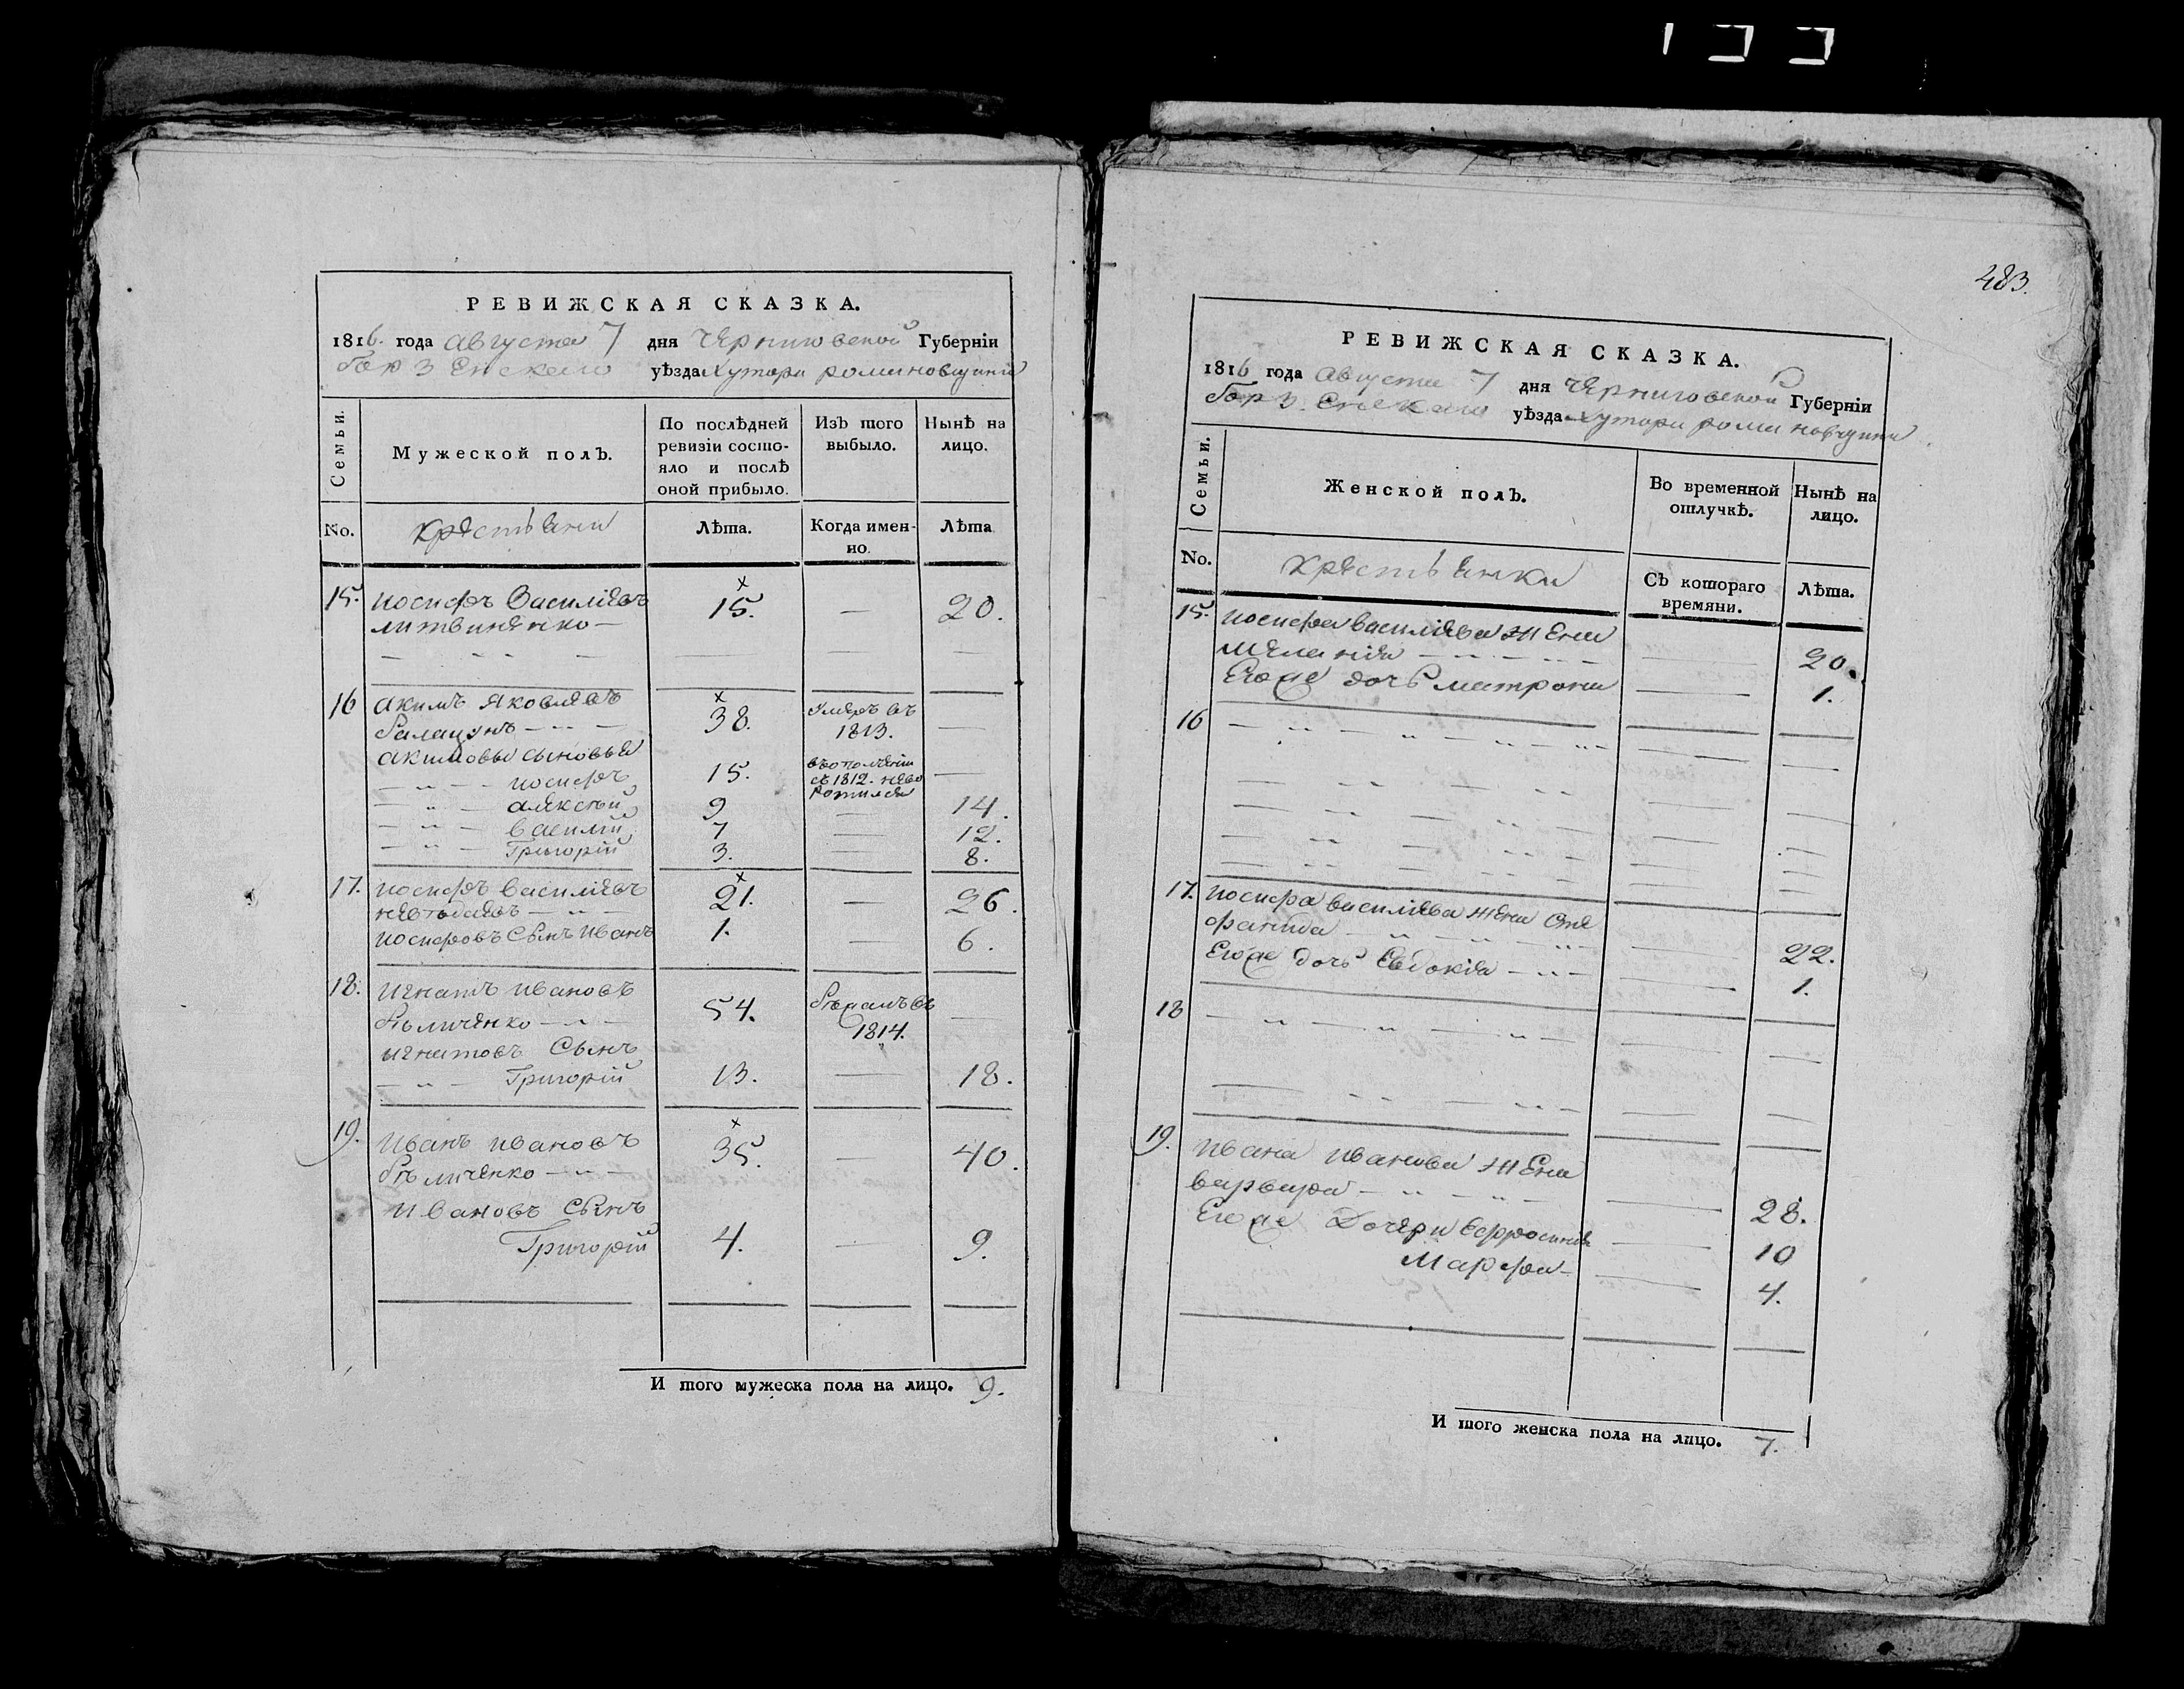 483.
РЕВИЖСКАЯ СКАЗКА.
1816. года августа 7 дня Черниговской Губерніи
Борзенскаго уѣзда хутора романовщини
Семьи. Мужеской полъ. По послѣдней ревизіи состояло и послѣ оной прибыло. Изъ того выбыло. Нынѣ на лицо.
No. крестьяни Лѣта. Когда именно. Лѣта
15. иосифъ Василіевъ 15. — 20.
литвиненко —
16 акимъ яковлевъ 38. умеръ въ
1813. —
акимовы сыновья
иосифъ 15. въ ополченіи
съ 1812. —
алексѣй 9 — 14.
василій 7 — 12.
Григорій 3. — 8.
17. иосифъ василіевъ 21. — 26.
иосифовъ Сынъ иванъ 1. — 6.
18. игнатъ ивановъ 54. —
1814.
игнатовъ Сынъ
Григорій 13. — 18.
19. иванъ ивановъ 35. — 40.
ивановъ Сынъ
Григорій 4. — 9.
И того мужеска пола на лицо. 9.
РЕВИЖСКАЯ СКАЗКА.
1816 года августа 7 дня Черниговской Губерніи
Борзенскаго уѣзда хутора романовщини
Семьи. Женской полъ. Во временной отлучкѣ. Нынѣ на лицо.
No. крестьянки Съ котораго времяни. Лѣта.
15. иосифа василіева жена
меланія — 20.
Его же дочь матрона — 1.
16
17. иосифа василіева жена Сте
фанида — 22.
Его же дочь Евдокія — 1.
18
19. ивана иванова жена
варвара — 28.
Его же Дочери Ефросинія — 10
Марфа — 4.
И того женска пола на лицо. 7.